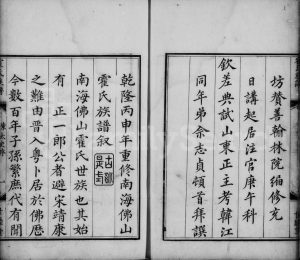 坊贊善翰林院編修充
日講起居注官庚午科
欽差典試山東正主考韓江
同年弟余志貞頓首拜譔
乾隆丙申年重修南海佛山
霍氏族譜叙
南海佛山霍氏世族也其始
有 正一郎公者避宋靖康
之難由晋入粤卜居於佛厯
今數百年子孫繁庶代有聞